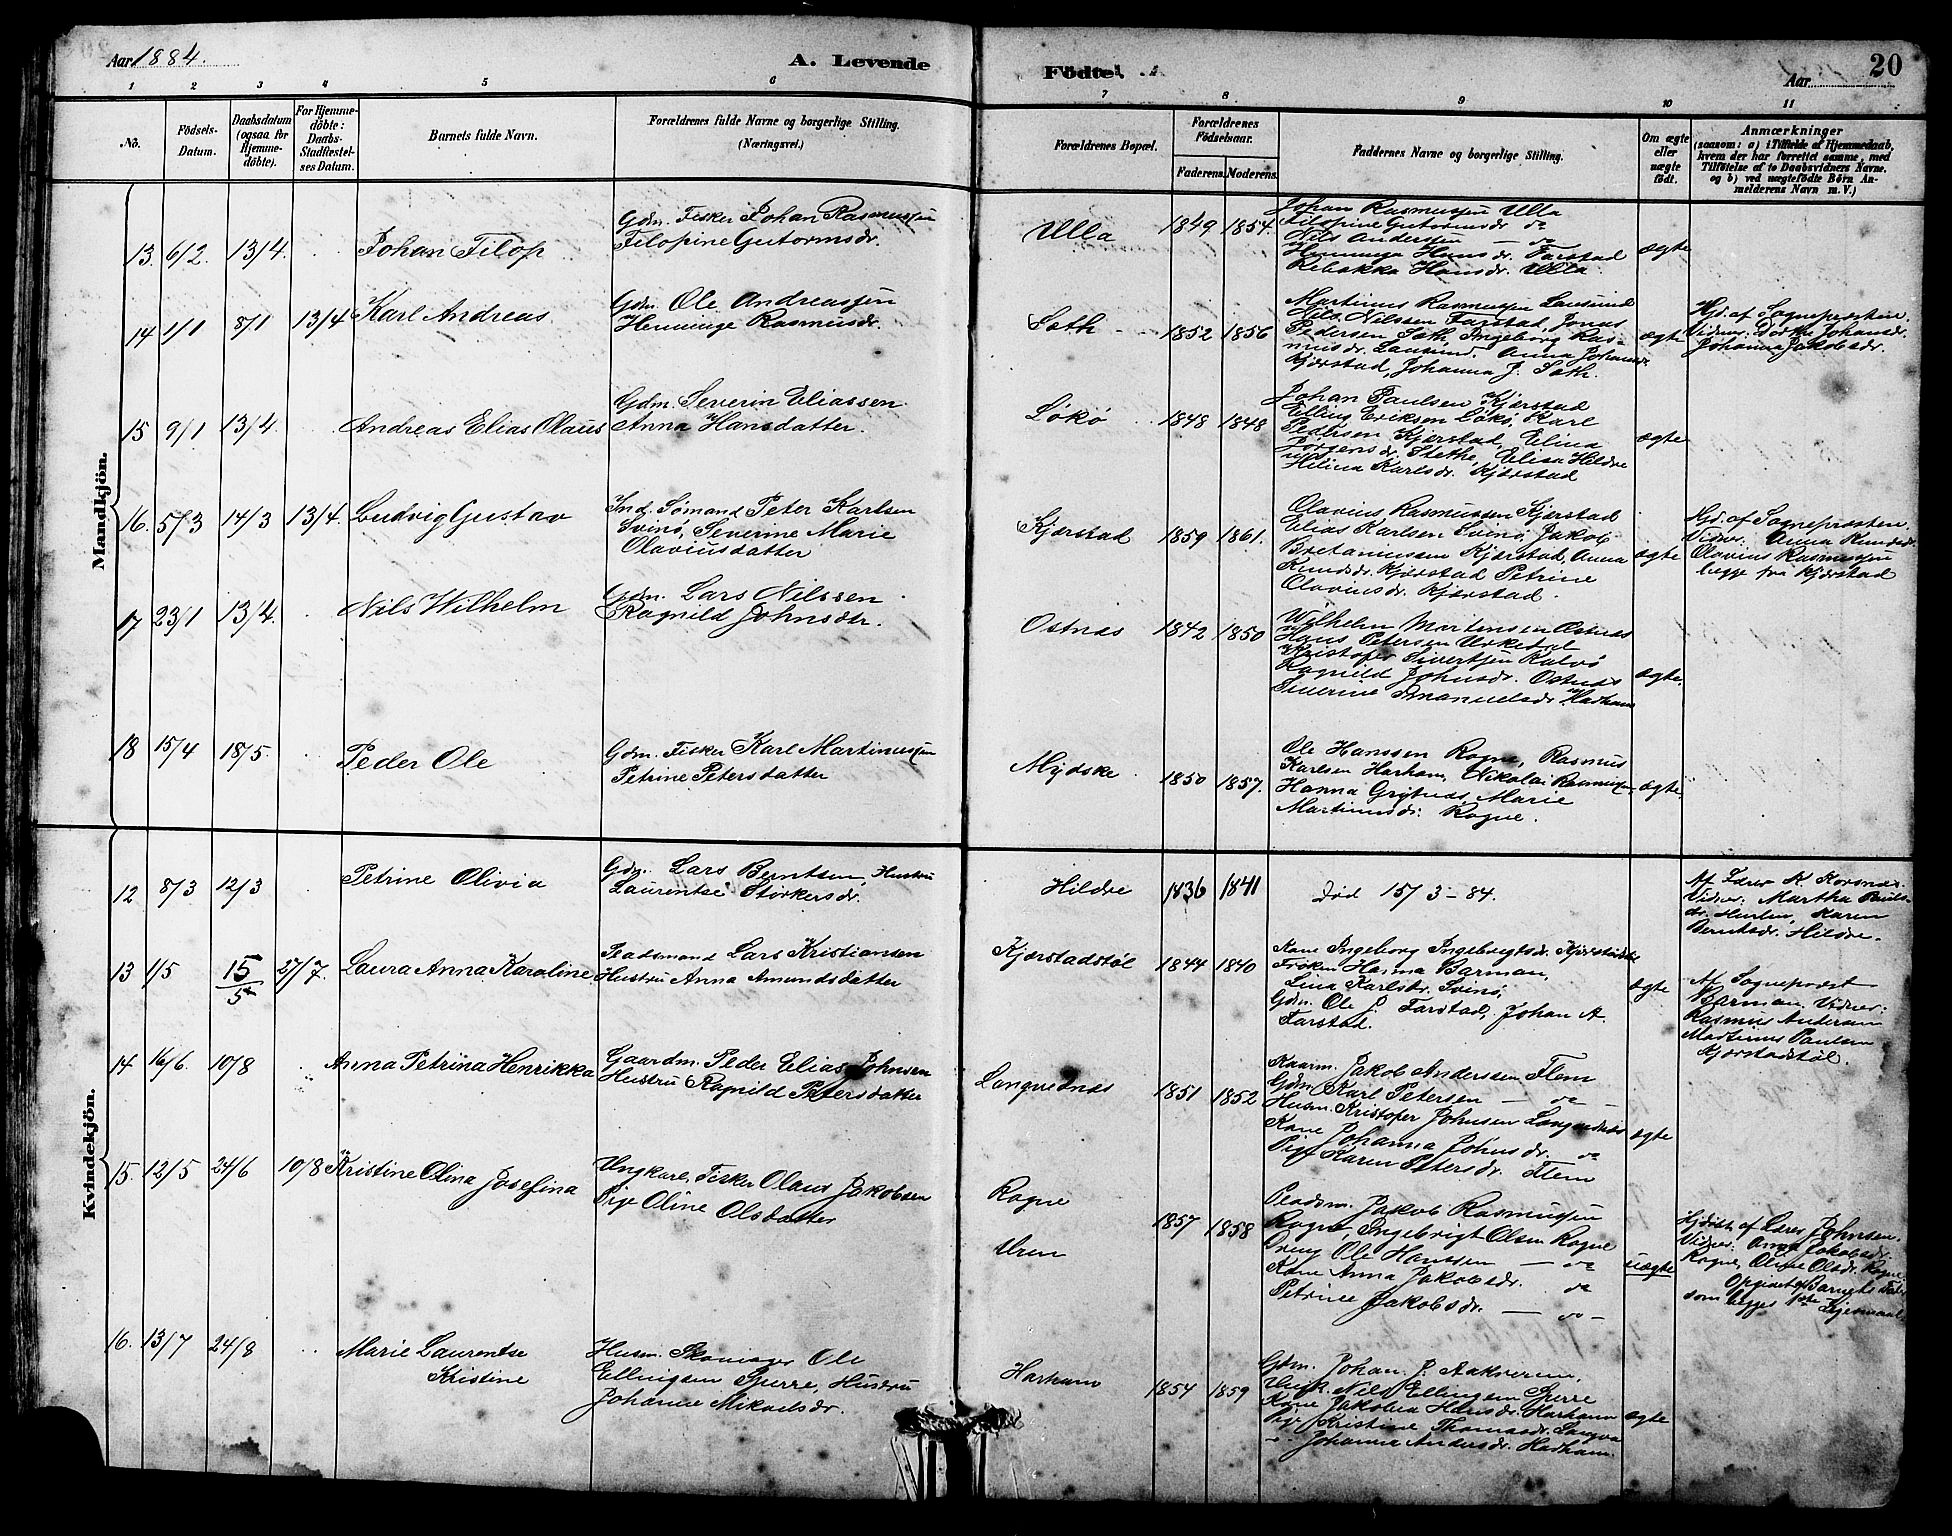 Aar 1884.
A. Levende
Födte.
Aar
20
1 2 3 4 5 6 7 8 9 10 11
No.
Födsels-
Datum.
Daabsdatum
(ogsaa for
Hjemme-
döbte).
For Hjemme-
döbte:
Daabs-
Stadfæstel-
ses Datum.
Barnets fulde Navn.
Forældrenes fulde Navne og borgerlige Stilling.
(Næringsvei.)
Forældrenes Bopæl.
Forældrenes
Födselsaar.
Faderens. Moderens.
Faddernes Navne og borgerlige Stilling.
Om ægte
eller
uægte
födt.
Anmærkninger
(saasom: a) i Tilfælde af Hjemmedaab,
hvem der har forrettet samme, med
Tilföielse af to Daabsvidners Navne,
og b) ved uægtefödte Börn An-
melderens Navn m. V.)
Mandkjön.
13. 6/2. 13/4. Johan Filop
Gdm. Fisker Johan Rasmussen
Filopine Gutormsdr.
Ulla 1849 1854.
Johan Rasmussen Ulla
Filopine Gutormsdr do
Nils Anderssen — do
Hemminga Hansdr. Farstad
Rebekka Hansdr. Ulla.
ægte
14 1/1 8/1 13/4 Karl Andreas.
Gdm. Ole Andreassen
Hemminge Rasmusdr.
Sæth 1852 1856
Martinus Rasmussen Lausund
Nils Nilssen Farstad, Jonas
Pedersen Sæth, Ingeborg Ras-
musdr. Lausund. Anna Johansdr.
Kjærstad, Johanna J. Sæth.
ægte
Hjd. af Sognepræsten
Vidner: Dorthe Johansdr.
Johanna Jakobsdr.
15 9/1 13/4 Andreas Elias Olaus
Gdm. Severin Eliassen
Anna Hansdatter.
Lökö 1848 1848
Johan Paulsen Kjærstad
Elling Eriksen Lökö, Karl
Pedersen Kjærstad, Elina
Jörgensdr. Stethe, Elisa Hildre
Helina Karlsdr. Kjærstad
ægte
16. 5/3 14/3 13/4. Ludvig Gustav
Ind. Sömand Peter Karlsen
Svinö, Severine Marie
Olaviusdatter
Kjærstad 1859 1861.
Olavius Rasmussen Kjærstad
Elias Karlsen Svinö, Jakob
Bretanussen Kjærstad, Anna
Knudsdr. Kjærstad Petrine
Olaviusdr. Kjærstad.
ægte
Hjd. af Sognepræsten
Vidner: Anna Knudsdr.
Olavius Rasmussen
begge fra Kjærstad
17 23/1 13/4. Nils Wilhelm
Gdm. Lars Nilssen
Ragnild Johnsdtr.
Ostnæs 1842 1850
Wilhelm Martinsen Ostnæs
Hans Petersen Urkedal
Kristofer Sivertsen Kalvö
Ragnild Johnsdr. Ostnæs
Severine Emanuelsdr. Harham
ægte.
18 15/4 18/5. Peder Ole
Gdm. Fisker Karl Martinussen
Petrine Petersdatter
Mydske 1850 1857.
Ole Hanssen Rogne, Rasmus
Karlsen Harham, Nikolai Rasmussen,
Hanna Grytnes, Marie
Martinusdr. Rogne.
ægte.
Kvindekjön.
12 8/3 12/3 Petrine Olivia
Gdm. Lars Berntsen, Hustru
Laurentse Storkersdr.
Hildre 1836 1841
Död 15/3 - 84.
Af Lærer K. Korsnæs.
Vidner: Martha Pauls-
dr. Hurlen, Karen
Berntsdr. Hildre.
13 1/5 15/5 27/7. Laura Anna Karoline
Pladsmand Lars Kristiansen
Hustru Anna Amundsdatter
Kjærstadstöl 1844 1840
Kone Ingeborg Ingebrigtsdr. Kjærstadstöl
Fröken Hanna Barman,
Lina Karlsdr. Svinö,
Gdm. Ole J. Farstad, Johan A.
Farstad.
ægte
Af Sognepræst
Barman, Vidner:
Rasmus Andersen
Martinus Paulsen
Kjærstadstöl.
14 16/6 10/8 Anna Petrina Henrikka
Gaardm. Peder Elias Johnsen
Hustru Ragnild Petersdatter
Longvednes 1851 1852
Kaarm. Jakob Anderssen Flem
Gdm. Karl Petersen — do —
Husm. Kristofer Johnsen Longvednæs
Kone Johanna Johnsdr. do
Pige Karen Petersdr. Flem
ægte
15. 12/5 24/6 10/8 Kristine Olina Josefina
Ungkarl, Fisker Olaus Jakobsen
Pige Oline Olsdatter
Rogne
Uren
1857 1858
Pladsm. Jakob Rasmussen
Rogne, Ingebrigt Olsen Rogne
Dreng Ole Hanssen — do
Kone Anna Jakobsdr. do
Petrine Jakobsdr. — do —
uægte
Hjdöbt af Lærer Johnsen.
Vidner: Anna Jakobsdr.
Rogne, Oline Olsdr. Rogne
Opgivet af Barnets Fader
som begges 1ste Leiermaal
16. 13/7 24/8 Marie Laurentse
Kristine
Husm. Skomager Ole
Ellingsen Sperre, Hustru
Johanne Mikaelsdr.
Harham 1854 1859
Gdm. Johan J. Aakverem,
Ungk. Nils Ellingsen Sperre
Kone Jakobea Hansdr. Harham
Pige Kristine Thomasdr. Longva
" Johanna Andersdr. Harham
ægte